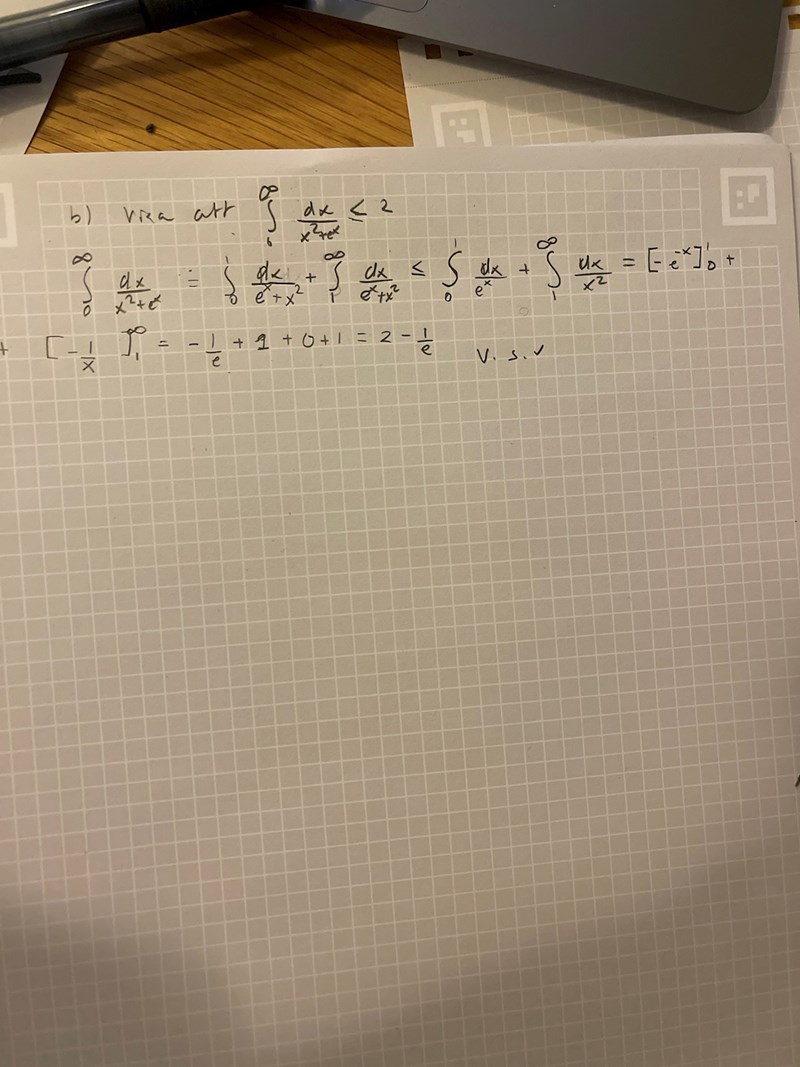 b) visa att ∫₀^∞ dx/(x²+eˣ) ≤ 2
∫₀^∞ dx/(x²+eˣ) = ∫₀¹ dx/(eˣ+x²) + ∫₁^∞ dx/(eˣ+x²) ≤ ∫₀¹ dx/eˣ + ∫₁^∞ dx/x² = [-e⁻ˣ]₀¹ +
+ [-1/x]₁^∞ = -1/e + 1 + 0 + 1 = 2 - 1/e v.s.v